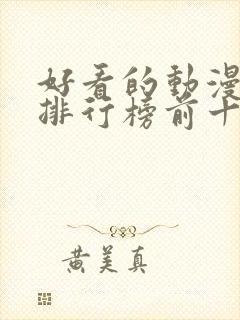 好看的動漫
排行榜前十
黄美真